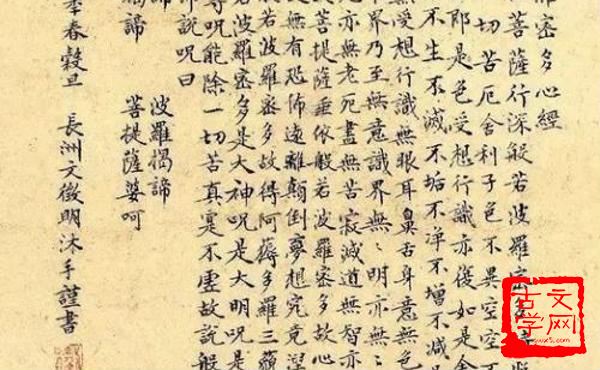 密多心經
菩薩行深般若波羅密多時
切苦厄舍利子色不異空空不
即是色受想行識亦復如是舍
不生不滅不垢不淨不增不減是
無受想行識無眼耳鼻舌身意無色
界乃至無意識界無〻明亦無〻
亦無老死盡無苦寂滅道無智亦
菩提薩埵依般若波羅密多故心
無有恐怖遠離顛倒夢想究竟涅
般若波羅密多故得阿耨多羅三藐
若波羅密多是大神咒是大明咒是
等呪能除一切苦真實不虛故說般
說呪曰
諦 波羅揭諦
揭諦 菩提薩婆呵
季春穀旦 長洲文徵明沐手謹書
古文学网